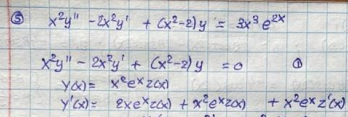 ③ x²y'' - 2x²y' + (x²-2)y = 3x³e²ˣ
x²y'' - 2x²y' + (x²-2)y = 0 ①
y(x) = x²eˣz(x)
y'(x) = 2xeˣz(x) + x²eˣz(x) + x²eˣz'(x)